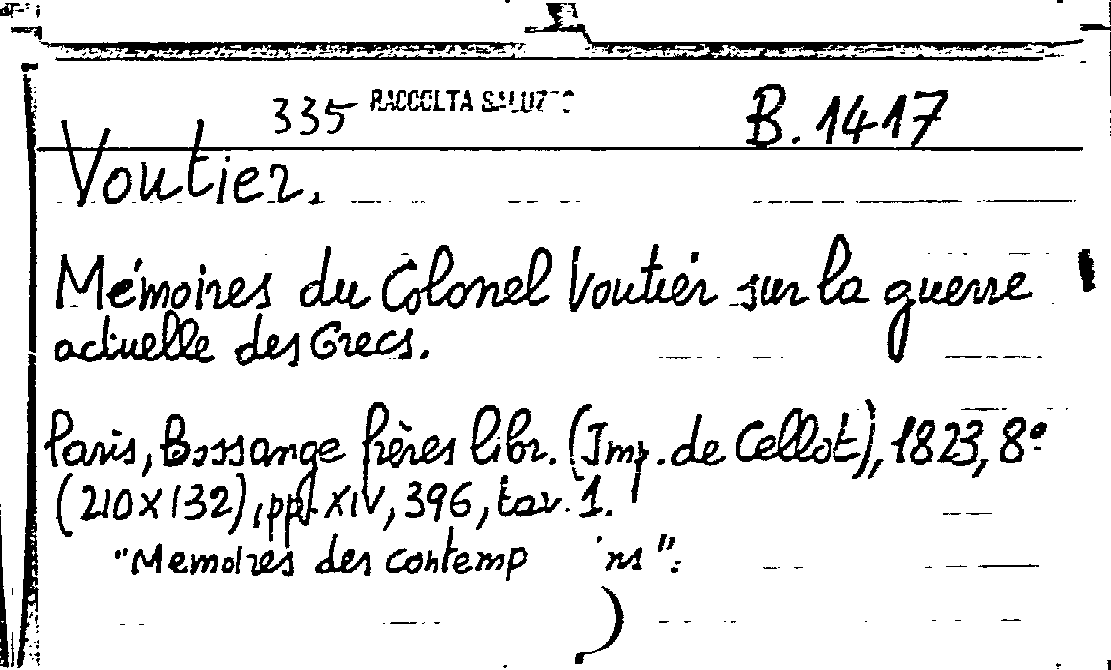 335 RACCOLTA SALUZZO B. 1417
Voutier,
Mémoires du Colonel Voutier sur la guerre
actuelle des Grecs.
Paris, Bossange frères libr. (Imp. de Cellot), 1823, 8°
(210 x 132), pp. XIV, 396, tav. 1.
"Memoires des